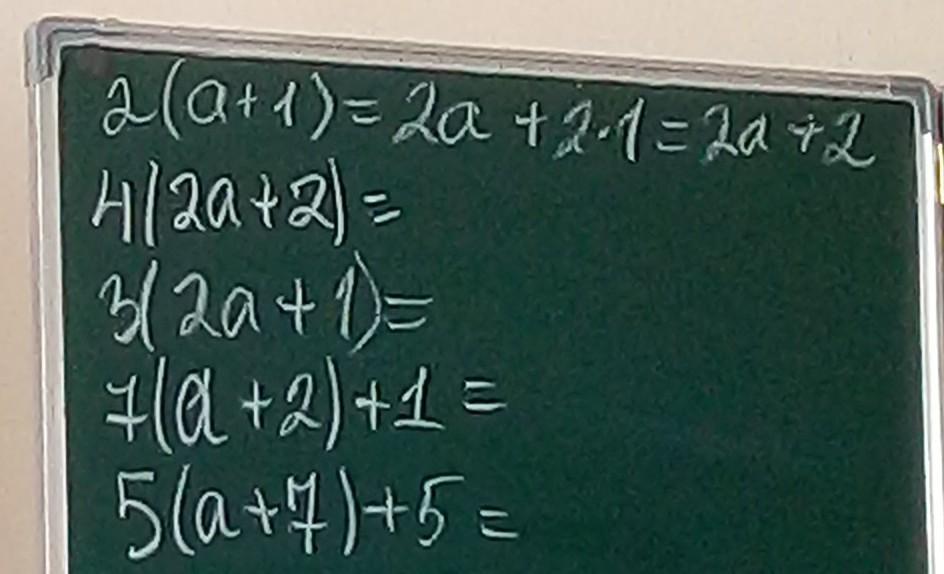 2(a+1)=2a+2·1=2a+2
4(2a+2)=
3(2a+1)=
7(a+2)+1=
5(a+7)+5=